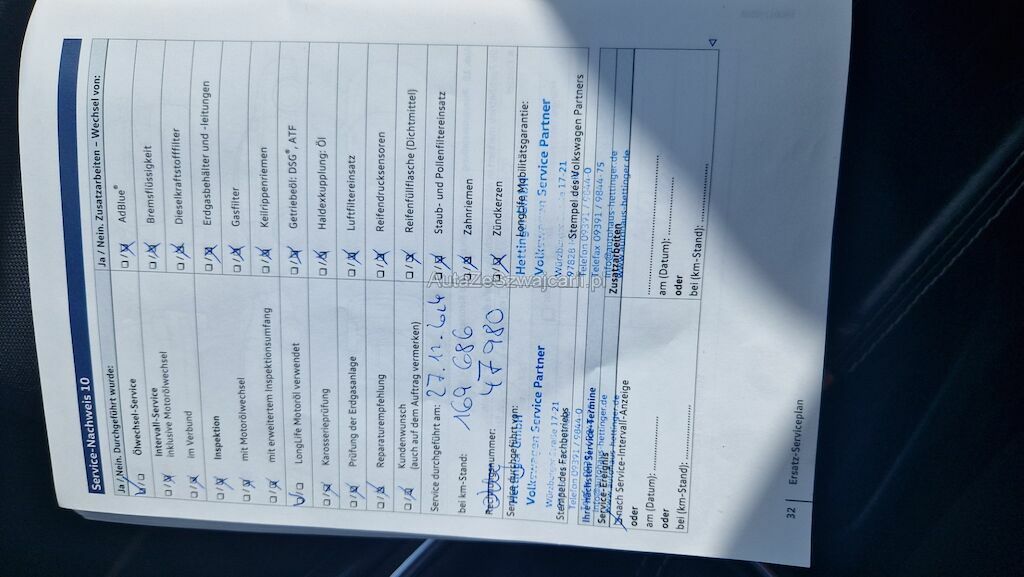 Service-Nachweis 10
Ja / Nein. Durchgeführt wurde:
Ölwechsel-Service
Intervall-Service
Inklusive Motorölwechsel
im Verbund
Inspektion
mit Motorölwechsel
mit erweitertem Inspektionsumfang
LongLife Motoröl verwendet
Karosserieprüfung
Prüfung der Erdgasanlage
Reparaturempfehlung
Kundenwunsch
(auch auf dem Auftrag vermerken)
Service durchgeführt am:
bei km-Stand: 169 686
Rechnungsnummer: 47980
Service durchgeführt von:
Volkswagen Service Partner
Würzburger Straße 17-21
Stempel des Fachbetriebs
Telefon 09391 / 9844-0
Ihre nächsten Service-Termine
Service-Ereignis
nach Service-Intervall-Anzeige
oder
am (Datum):
oder
bei (km-Stand):
Ja / Nein. Zusatzarbeiten – Wechsel von:
AdBlue®
Bremsflüssigkeit
Dieselkraftstofffilter
Erdgasbehälter und -leitungen
Gasfilter
Keilrippenriemen
Getriebeöl: DSG®, ATF
Haldexkupplung: Öl
Luftfiltereinsatz
Reifendrucksensoren
Reifenfüllflasche (Dichtmittel)
Staub- und Pollenfiltereinsatz
Zahnriemen
Zündkerzen
LongLife Mobilitätsgarantie:
Volkswagen Service Partner
Würzburger Straße 17-21
97828
Stempel des Volkswagen Partners
Telefon 09391 / 9844-0
Telefax 09391 / 9844-75
Zusatzarbeiten
am (Datum):
oder
bei (km-Stand):
32 Ersatz-Serviceplan
AutaZeSzwajcarii.pl